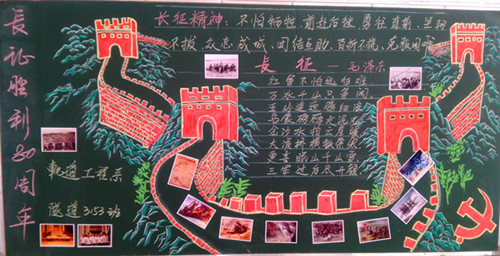 長征胜利80周年
长征精神：不怕牺牲，前赴后继，勇往直前，坚韧
不拔，众志成城，团结互助，百折不挠，克服困难
长征 —毛泽东
红军不怕远征难
万水千山只等闲
五岭逶迤腾细浪
乌蒙磅礴走泥丸
金沙水拍云崖暖
大渡桥横铁索寒
更喜岷山千里雪
三军过后尽开颜
轨道工程系
隧道3153班